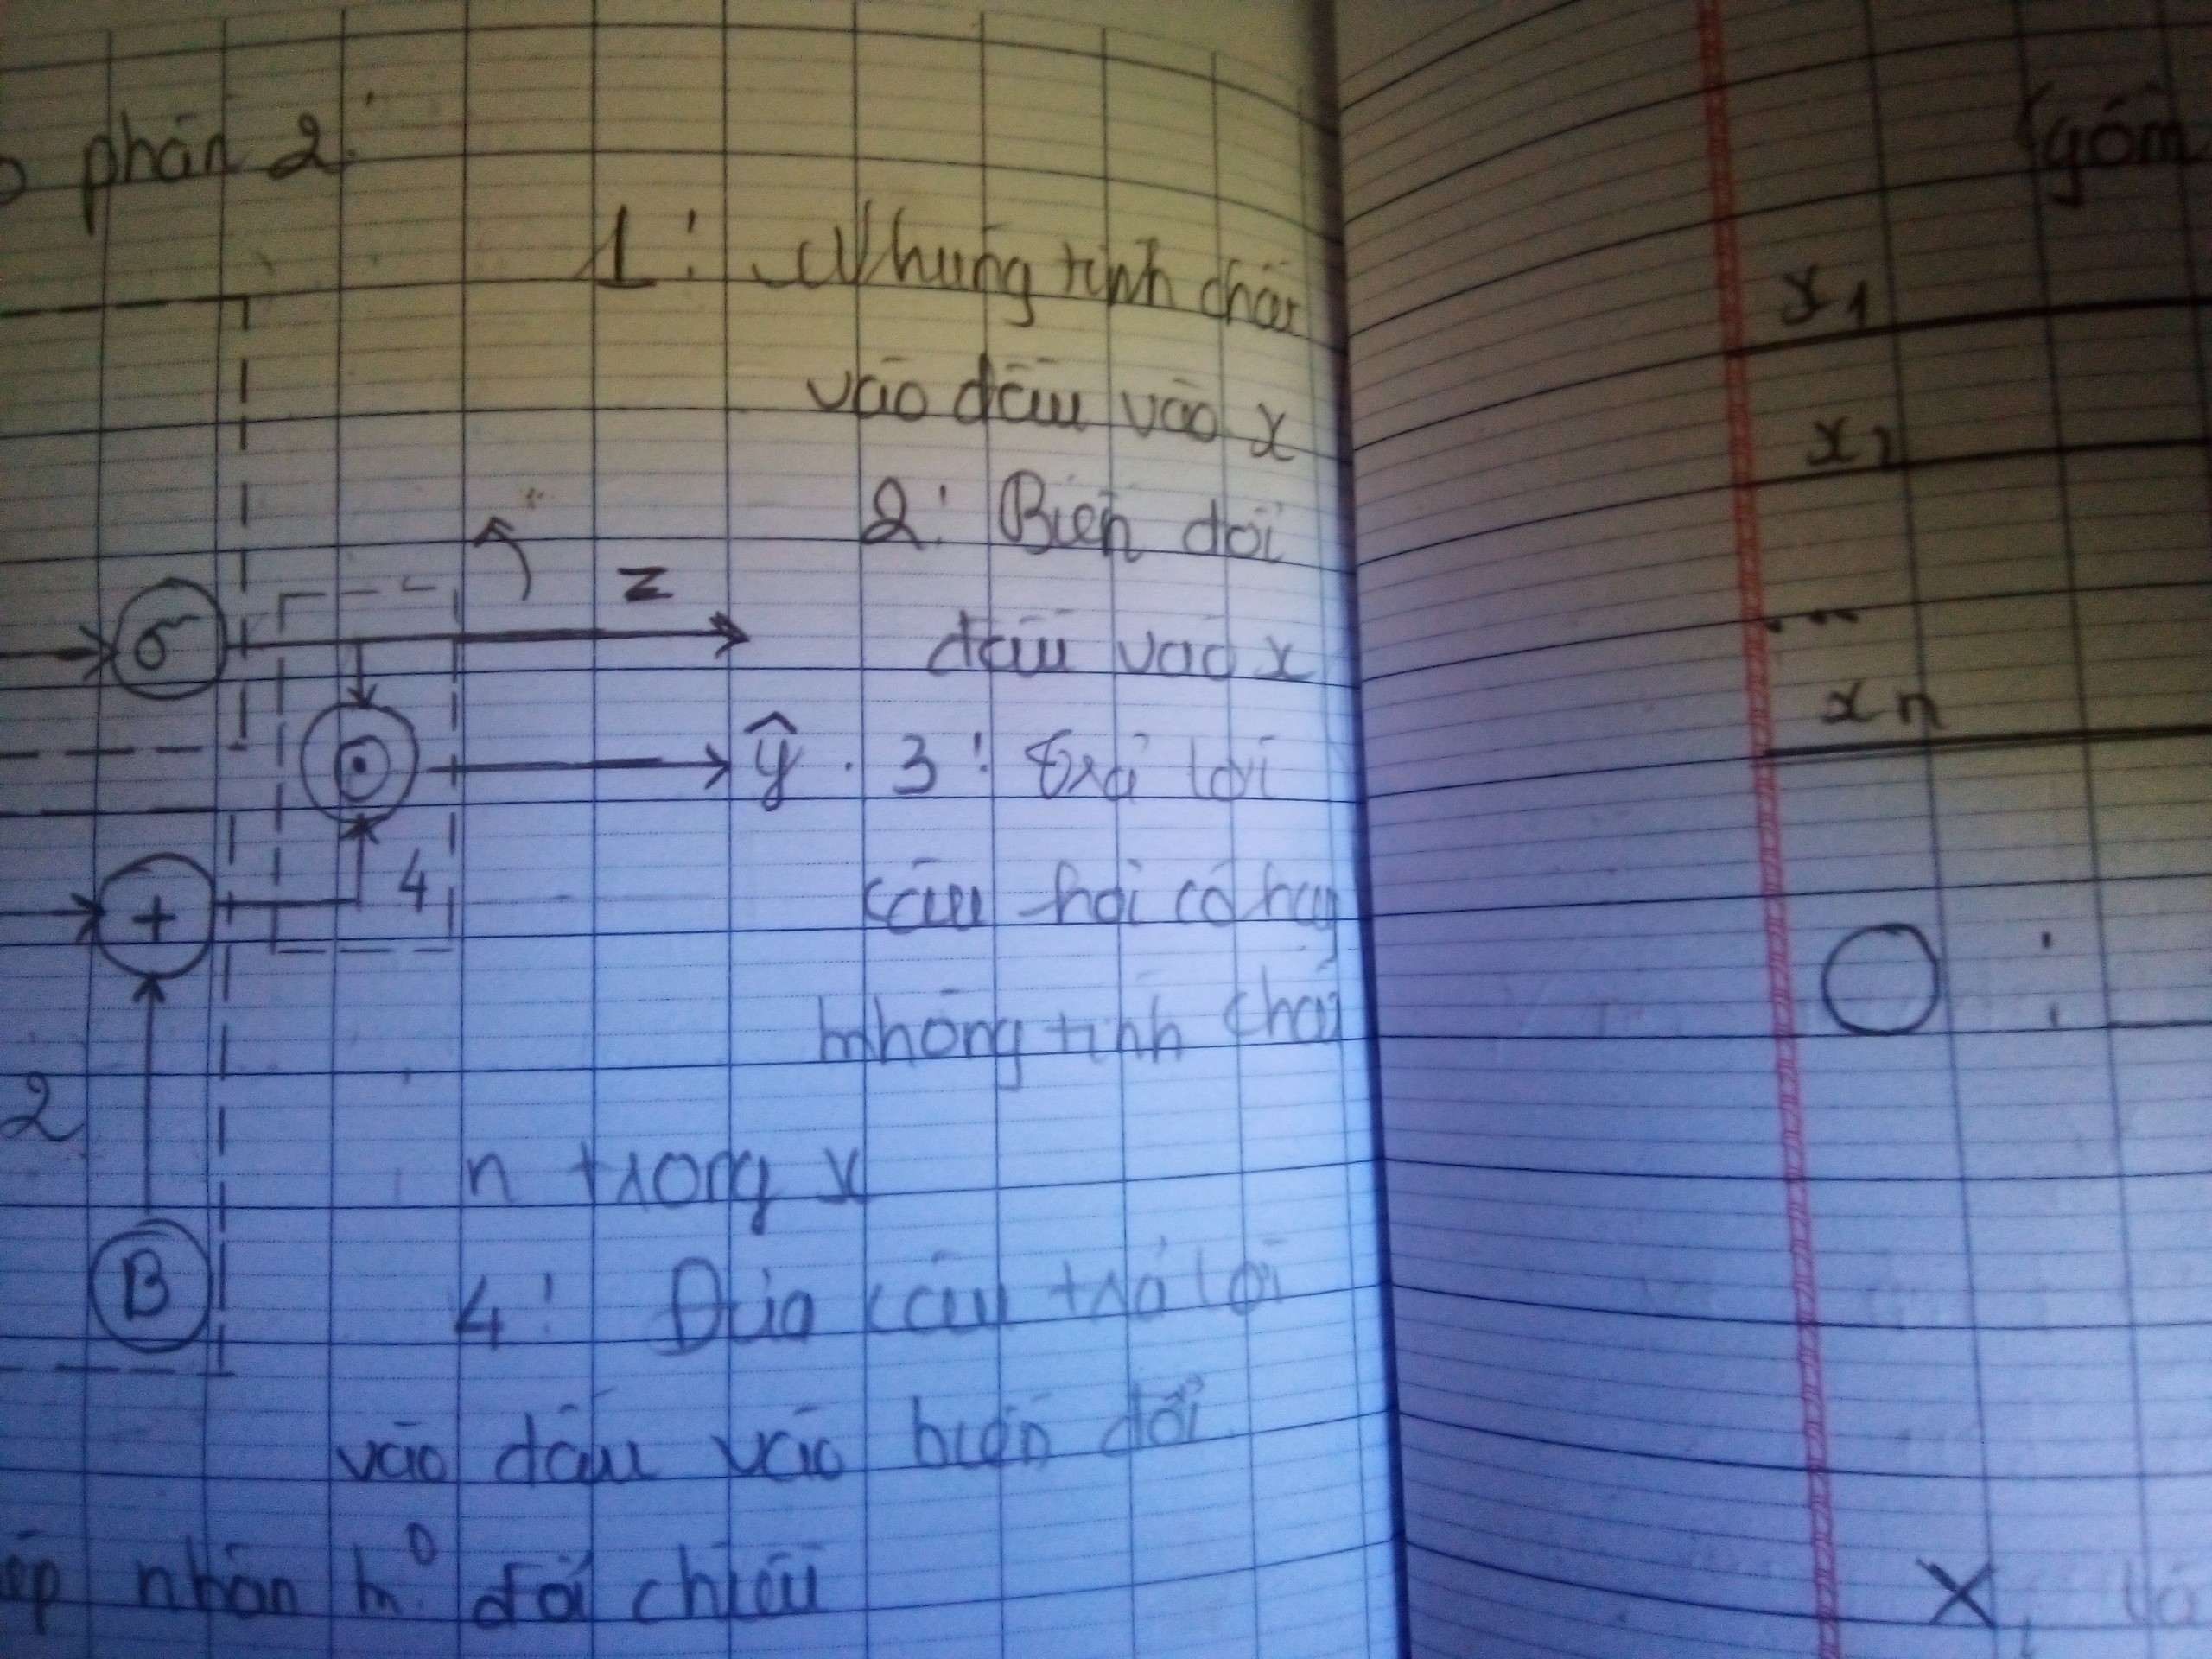 phần 2:
1: Những tính chất
vào đầu vào x
2: Biến đổi
đầu vào x
σ
z
ŷ
3: Trả lời
câu hỏi có hay
không tính chất
+
4
2
n trong x
B
4: Đưa câu trả lời
vào đầu vào biến đổi
nhân đối chiếu
(gồm
x1
x2
...
xn
:
X